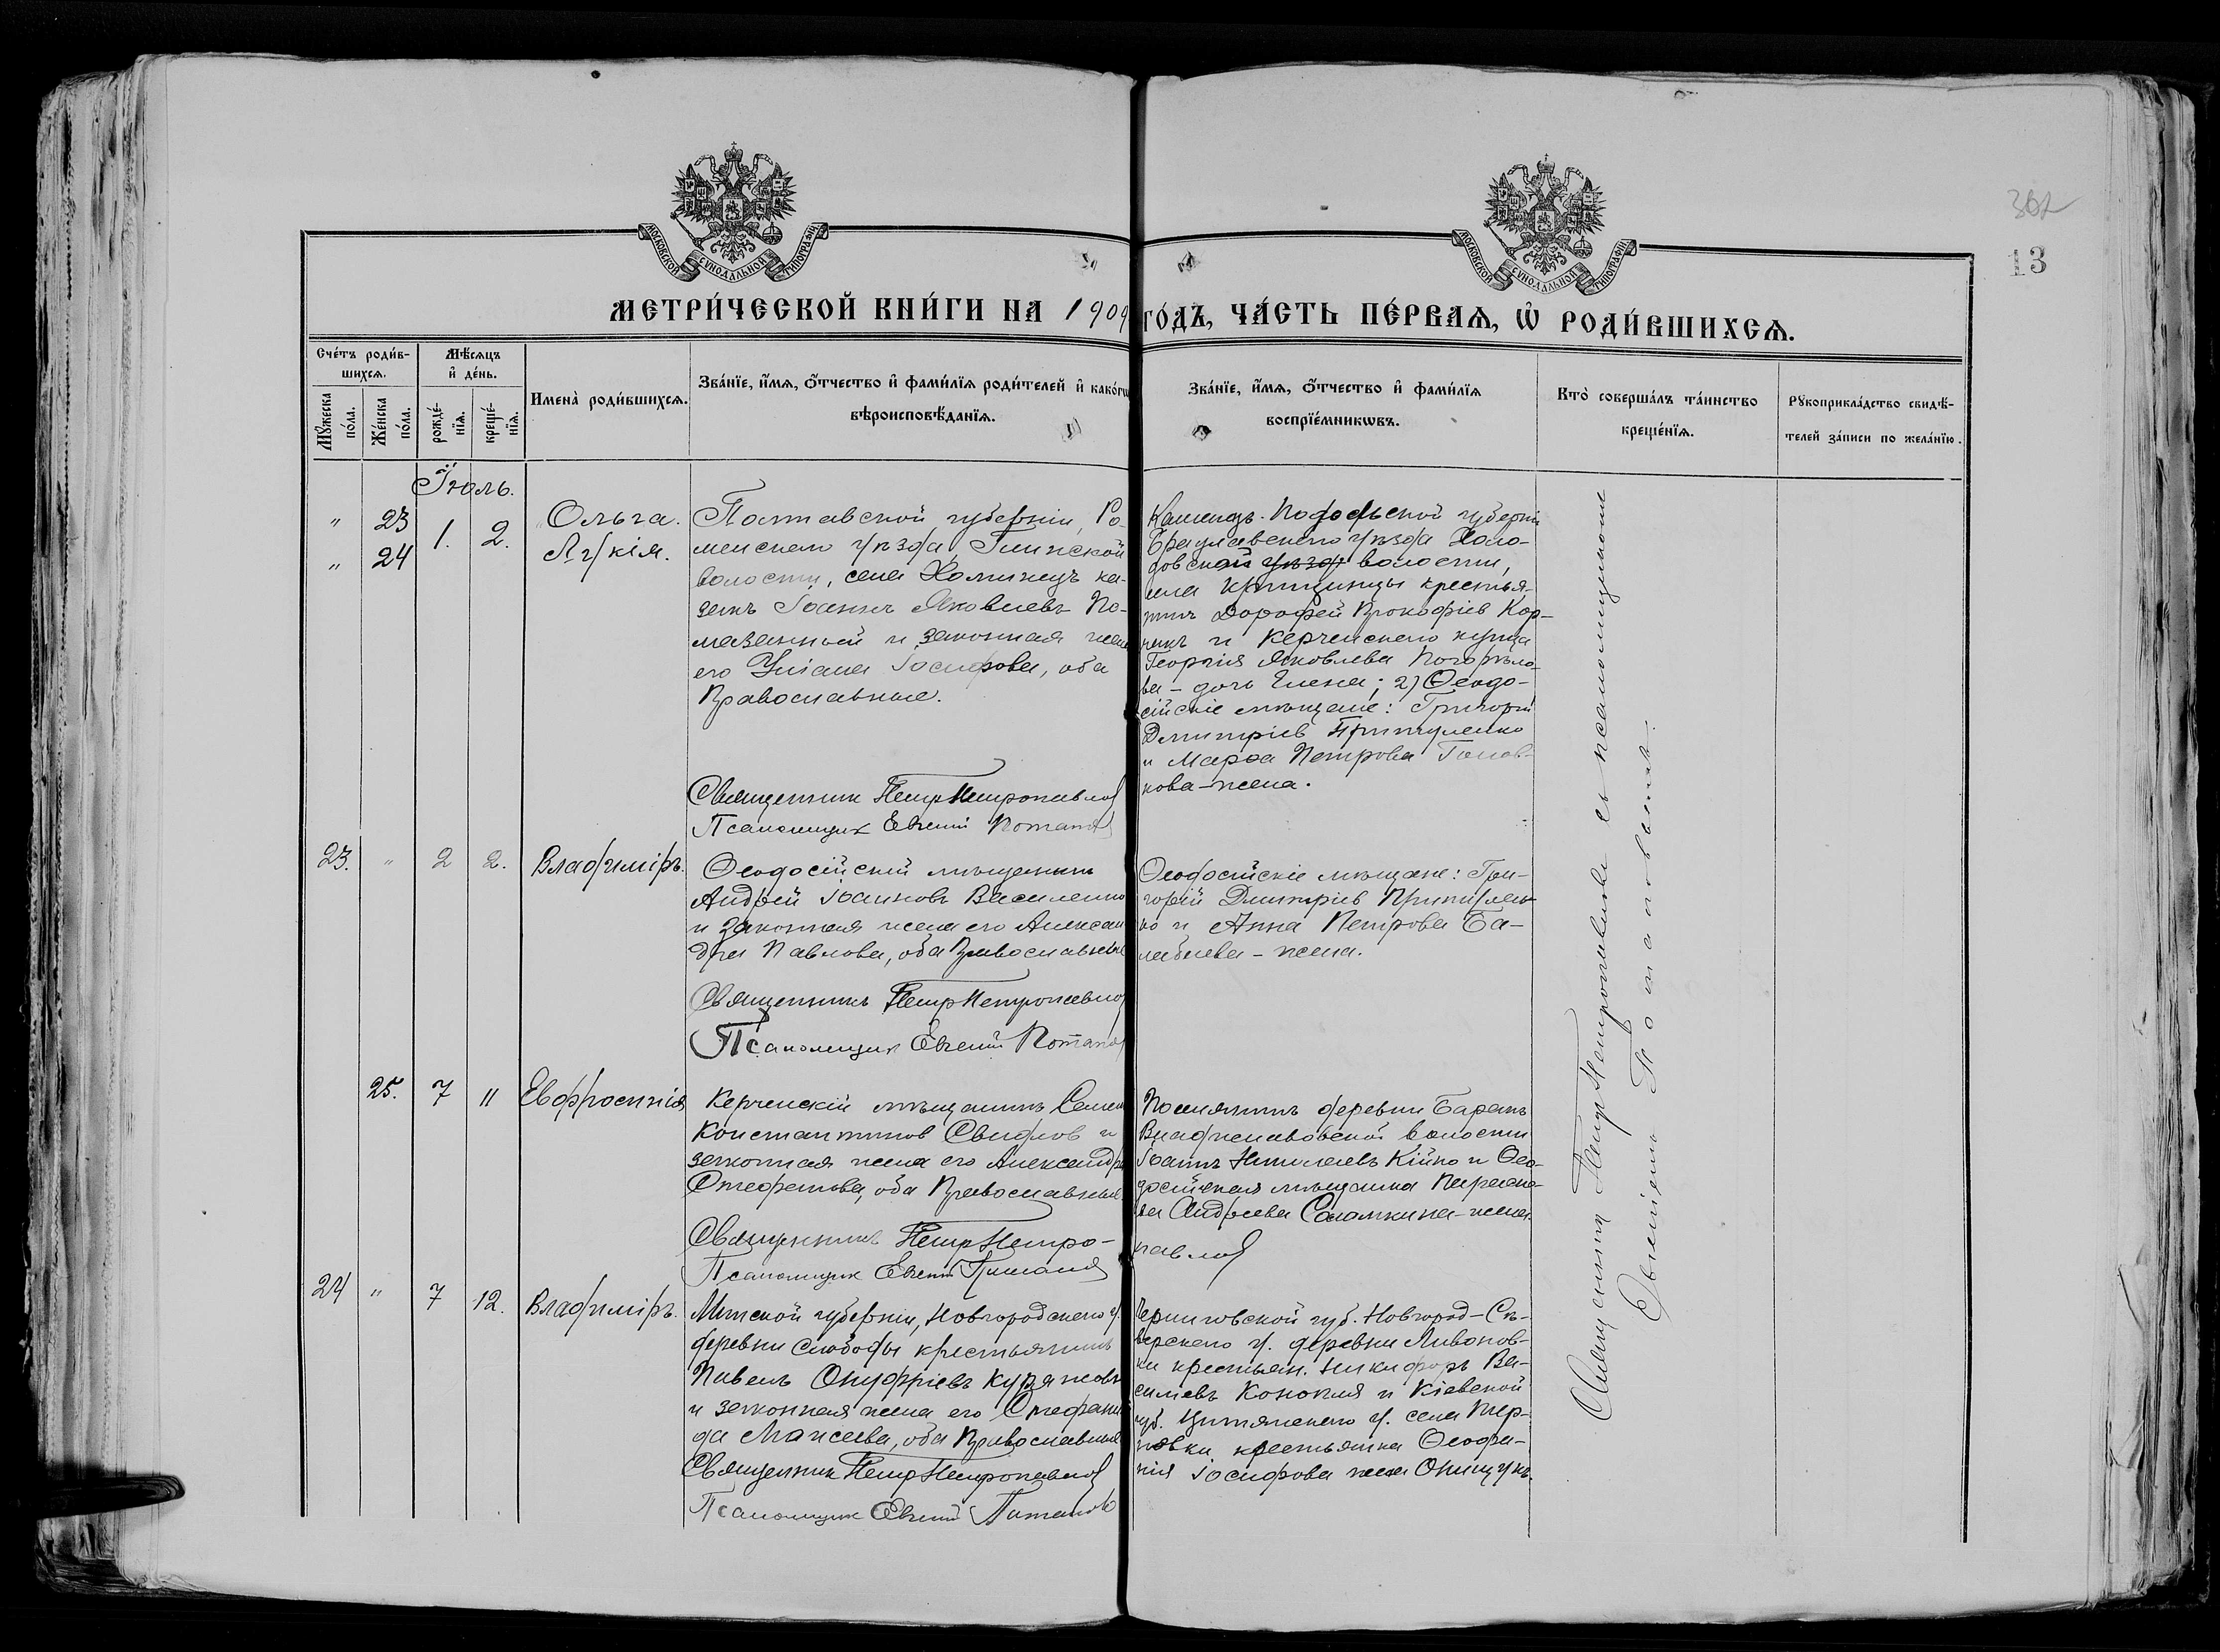 302
13
МОСКОВСКОЙ СѴНОДАЛЬНОЙ ТИПОГРАФІИ
МОСКОВСКОЙ СѴНОДАЛЬНОЙ ТИПОГРАФІИ
МЕТРИ́ЧЕСКОЙ КНИ́ГИ НА 1909 ГО́ДЪ, ЧА́СТЬ ПЕ́РВАѦ, Ѡ҆ РОДИ́ВШИХСѦ.
Сче́тъ роди́в-
шихсѧ.
Мꙋ́жеска
по́ла.
Же́нска
по́ла.
Мѣ́сѧцъ
и҆ де́нь.
рожде́-
нїѧ.
креще́-
нїѧ.
Имена̀ роди́вшихсѧ.
Зва́нїе, и҆́мѧ, ѻ҆́тчество и҆ фами́лїѧ роди́телей и҆ како́гѡ
вѣроисповѣ́данїѧ.
Зва́нїе, и҆́мѧ, ѻ҆́тчество и҆ фами́лїѧ
воспрїе́мникѡвъ.
Кто̀ соверша́лъ та́инство
креще́нїѧ.
Рꙋкоприкла́дство свидѣ́-
телей за́писи по жела́нїю.
Іюль.
" 23 1. 2. Ольга.
" 24 Лукія.
Полтавской губерніи, Ро-
менскаго уѣзда, Глинской
волости, села Хоминецъ ка-
закъ Іоаннъ Яковлевъ По-
мазанный и законная жена
его Уліана Іосифова, оба
Православные.
Священникъ Петръ Петропавлов
Псаломщикъ Евгеній Потапов
Каменецъ-Подольской губерніи
Брацлавскаго уѣзда
довской уѣзд волости,
села крестья-
нинъ Дорофей Прокофіев Кор-
и Керченскаго купца
Георгія Яковлева Погорѣло-
ва - дочь Елена; 2) Ѳеодо-
сійскіе мѣщане: Григорій
Дмитріев Притуленко
и Марѳа Петрова Голов-
кова - жена.
23. " 2 2. Владиміръ.
Ѳеодосійскій мѣщанинъ
Андрей Іоанновъ Василенко
и законная жена его Алексан
дра Павлова, оба Православные
Священникъ Петръ Петропавлов
Псаломщикъ Евгеній Потапов
Ѳеодосійскіе мѣщане: Гри-
горій Дмитріев Притулен-
ко и Анна Петрова Ба-
лабаева - жена.
25. 7 11 Евфросинія
Керченскій мѣщанинъ Семен
Константинов Свидлов и
законная жена его Александра
Стефанова, оба Православные
Священникъ Петръ Петро-
павлов
Псаломщикъ Евгеній Потапов
Поселянинъ деревни Баранъ
Владиславовской волости
Іоаннъ Николаевъ Кійко и Ѳео-
досійская мѣщанка Параске-
ва Андреева Соломкина - жена.
24 " 7 12. Владиміръ.
Минской губерніи, Новгородскаго у.
деревни Слободы крестьянинъ
Павелъ Онуфріевъ
и законная жена его Стефани
да Моисеева, оба Православные
Священникъ Петръ Петропавлов
Псаломщикъ Евгеній Потапов
Черниговской губ. Новгород-Сѣ-
верскаго у. деревни Ливонов-
ки крестьян. Никифоръ Ва-
сильевъ Конопля и Кіевской
губ. у. села Тер-
новки крестьянка Ѳеофа-
нія Іосифова жена Онищукъ.
Священникъ Петръ Петропавловъ съ псаломщикомъ
Евгеніемъ Потаповымъ.